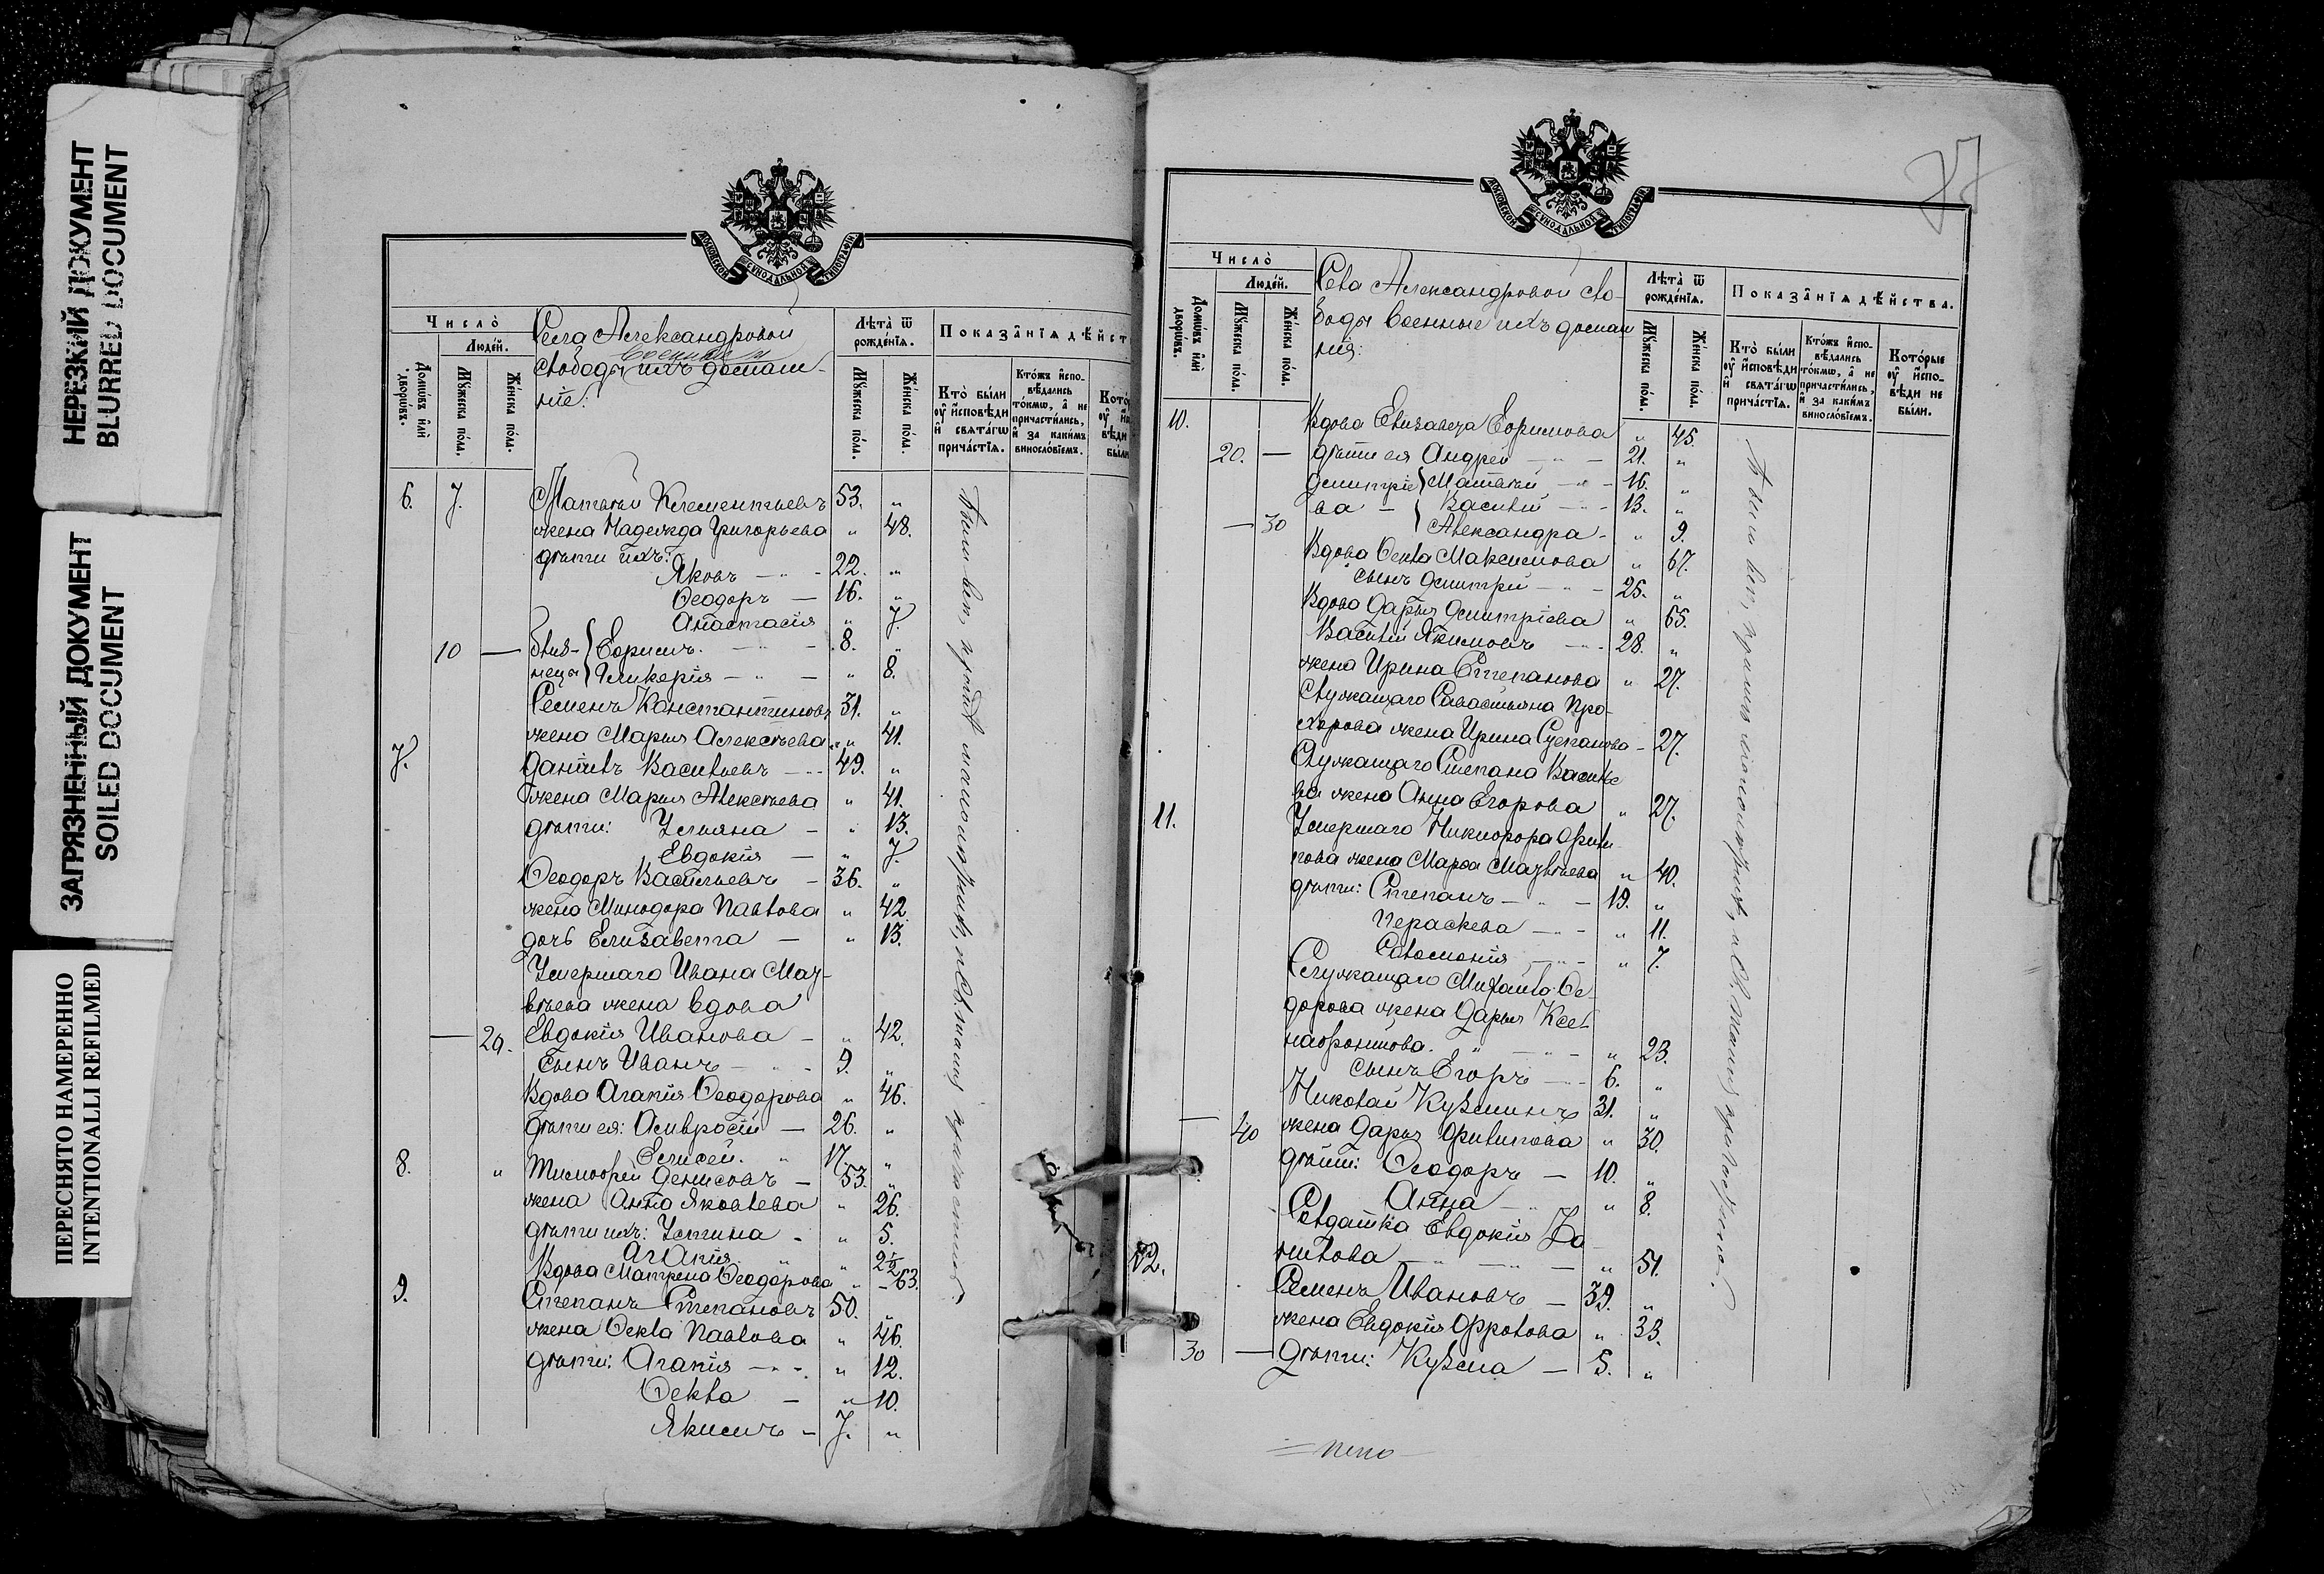 НЕРЕЗКИЙ ДОКУМЕНТ
BLURRED DOCUMENT
ЗАГРЯЗНЕННЫЙ ДОКУМЕНТ
SOILED DOCUMENT
ПЕРЕСНЯТО НАМЕРЕННО
INTENTIONALLI REFILMED
МОСКОВСКОЙ СУНОДАЛЬНОЙ ТИПОГРАФІИ
Число̀
Людéй.
Домѡ́въ и҆лѝ дворѡ́въ.
Мꙋ́жеска по́ла.
Же́нска по́ла.
Села Александровой
военные и
слободы ихъ домаш-
ніе:
Лѣ́та ѿ рождéнїѧ.
Мꙋ́жеска по́ла.
Же́нска по́ла.
Показа̑нїѧ дѣ́йст
Кто̀ бы́ли ᲂу҆ и҆сповѣ́ди и҆ свѧта́гѡ прича́стїѧ.
Кто́жъ и҆спо-вѣ́дались то́кмѡ, а҆ не причасти́лись, и҆ за каки́мъ винослóвїемъ.
6. 7. Матвѣй Клементьевъ 53. "
жена Надежда Григорьева " 48.
дѣти ихъ:
Яковъ — " - 22. "
Ѳеодоръ — 16. "
Анастасія " 7.
10 — близ- Ефримъ. — " - 8. "
нецы Гликерія — " — " 8.
Семенъ Константиновъ 31. "
жена Марья Алексѣева " 41.
7. Даніилъ Васильевъ — " - 49. "
жена Марья Алексѣева " 41.
дѣти: Ульяна — " 13.
Евдокія — " 7.
Ѳеодоръ Васильевъ — 36. "
жена Минодора Павлова " 42.
дочь Елизавета — " 13.
Умершаго Ивана Мат-
вѣева жена вдова
— 20. Евдокія Иванова — " 42.
сынъ Иванъ — " - 9. "
Вдова Агапія Ѳеодорова " 46.
дѣти ея: Амвросій — 26. "
Елисей. " 17. "
8. " Тимофей Денисовъ — 53. "
жена Анна Яковлева " 26.
дѣти ихъ: Устина - " 5.
Агапія " " 2½
Вдова Матрена Ѳеодорова " — 63.
9. Степанъ Степановъ 50. "
жена Ѳекла Павлова " 46.
дѣти: Агапія — " - " 12.
Ѳекла — " 10.
Якимъ — 7. "
27
МОСКОВСКОЙ СУНОДАЛЬНОЙ ТИПОГРАФІИ
Число̀
Людéй.
Домѡ́въ и҆лѝ дворѡ́въ.
Мꙋ́жеска по́ла.
Же́нска по́ла.
Села Александровой сло-
боды военные ихъ домаш
нія:
Лѣ́та ѿ рождéнїѧ.
Мꙋ́жеска по́ла.
Же́нска по́ла.
Показа̑нїѧ дѣ́йства.
Кто̀ бы́ли ᲂу҆ и҆сповѣ́ди и҆ свѧта́гѡ прича́стїѧ.
Кто́жъ и҆спо-вѣ́дались то́кмѡ, а҆ не причасти́лись, и҆ за каки́мъ винослóвїемъ.
Кото́рые ᲂу҆ и҆спо-вѣ́ди не бы́ли.
10. Вдова Елизавета Ефримова " 45.
20. — дѣти ея Андрей — " - 21. "
Дмитріе Матвѣй — " - 16. "
ва — Василій — " - 13. "
— 30 Александра - " 9.
Вдова Ѳекла Максимова " 67.
сынъ Дмитрій — " - 25. "
Вдова Дарья Дмитріева " 65.
Василій Якимовъ — " - 28. "
жена Ирина Степанова " 27.
Служащаго Савастьяна Про-
хорова жена Ирина Степанова - 27.
Служащаго Степана Василье
ва жена Анна Егорова " 27.
11. Умершаго Никифора Фили
пова жена Марфа Матвѣева " 40.
дѣти: Степанъ — " - 19. "
Пераскева — " - " 11.
Соломонія — " - " 7.
Служащаго Михаило Ѳе-
дорова жена Дарья Ксе
нофонтова. " — " - " 23.
сынъ Егоръ — " - 6. "
Николай Кузминъ 31. "
— 40 жена Дарья Филипова " 30.
дѣти: Ѳеодоръ — 10. "
Анна — " - " 8.
Солдатка Евдокія Да
нилова — " — " 51.
12. Семенъ Ивановъ — 39. "
жена Евдокія Фролова " 33.
30 — дѣти: Кузма — 5. "